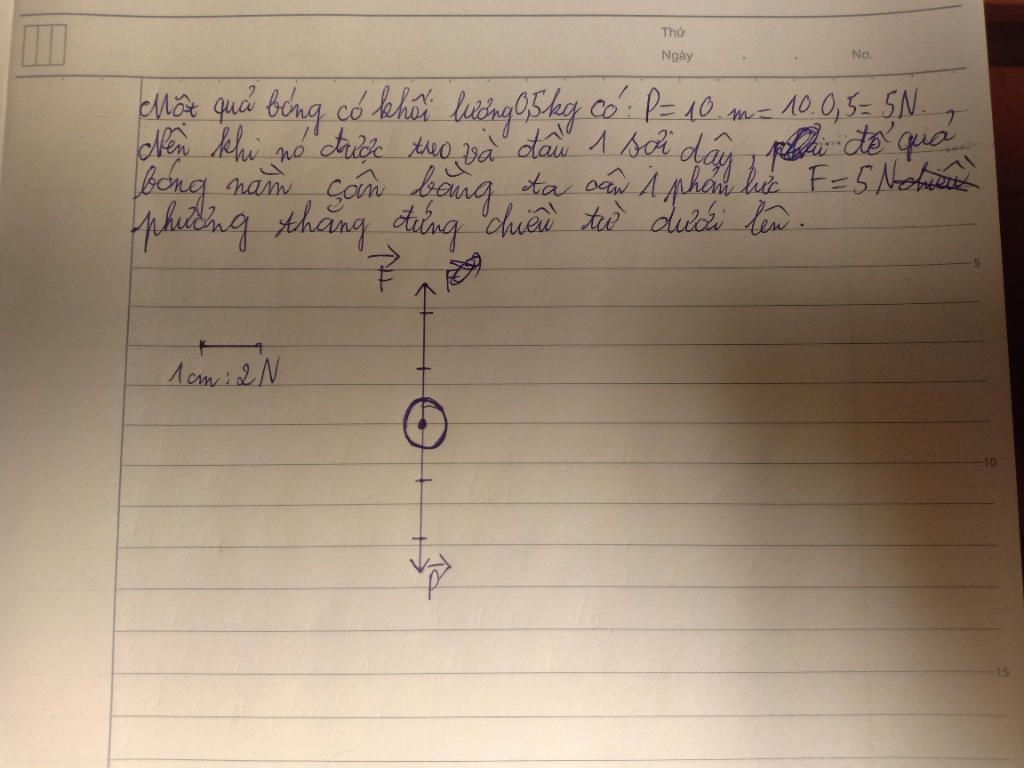 Thứ
Ngày . . No.
Một quả bóng có khối lượng 0,5kg có: P = 10.m = 10.0,5 = 5N.
Nên khi nó được treo và đầu 1 sợi dây, để quả
bóng nằm cân bằng ta cần 1 phản lực F = 5N chiều
phương thẳng đứng chiều từ dưới lên.
F
5
1cm : 2N
10
P
15